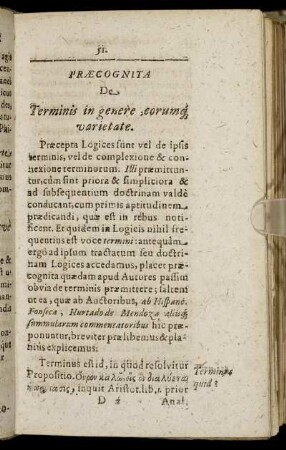 51.
PRÆCOGNITA
De
Terminis in genere, eorumq́
varietate.
Præcepta Logices sunt vel de ipsis
terminis, vel de complexione & con-
nexione terminorum. Illi præmittun-
tur, cùm sint priora & simpliciora &
ad subsequentium doctrinam valdè
conducant, cum primis aptitudinem
prædicandi, quæ est in rebus noti-
ficent. Et quidem in Logicis nihil fre-
quentius est voce termini: antequàm
ergò ad ipsum tractatum seu doctri-
nam Logices accedamus, placet præ-
cognita quædam apud Autores passim
obvia de terminis præmittere; saltem
ut ea, quæ ab Auctoribus, ab Hispano
Fonseca, Hurtado de Mendoza aliisq́
summularum commentatoribus hîc præ-
ponuntur, breviter prælibemus & pla-
niùs explicemus.
Terminus est id, in quod resolvitur
Propositio.
inquit Aristot. lib. 1. prior
Terminus
quid?
D Anal.